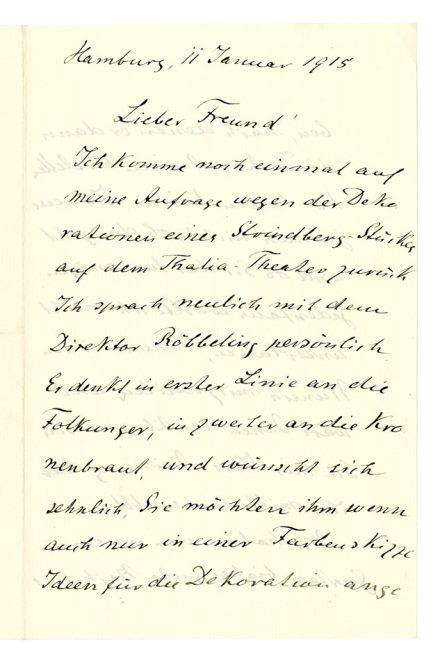 Hamburg, 11 Januar 1915
Lieber Freund!
Ich komme noch einmal auf
meine Anfrage wegen der Deko
rationen eines Strindberg-Stückes
auf dem Thalia-Theater zurück
Ich sprach neulich mit dem
Direktor Röbbeling persönlich
Er denkt in erster Linie an die
Folkunger, in zweiter an die Kro
nenbraut, und wünscht sich
sehnlich, Sie möchten ihm wenn
auch nur in einer Farbenskizze
Ideen für die Dekoration ange